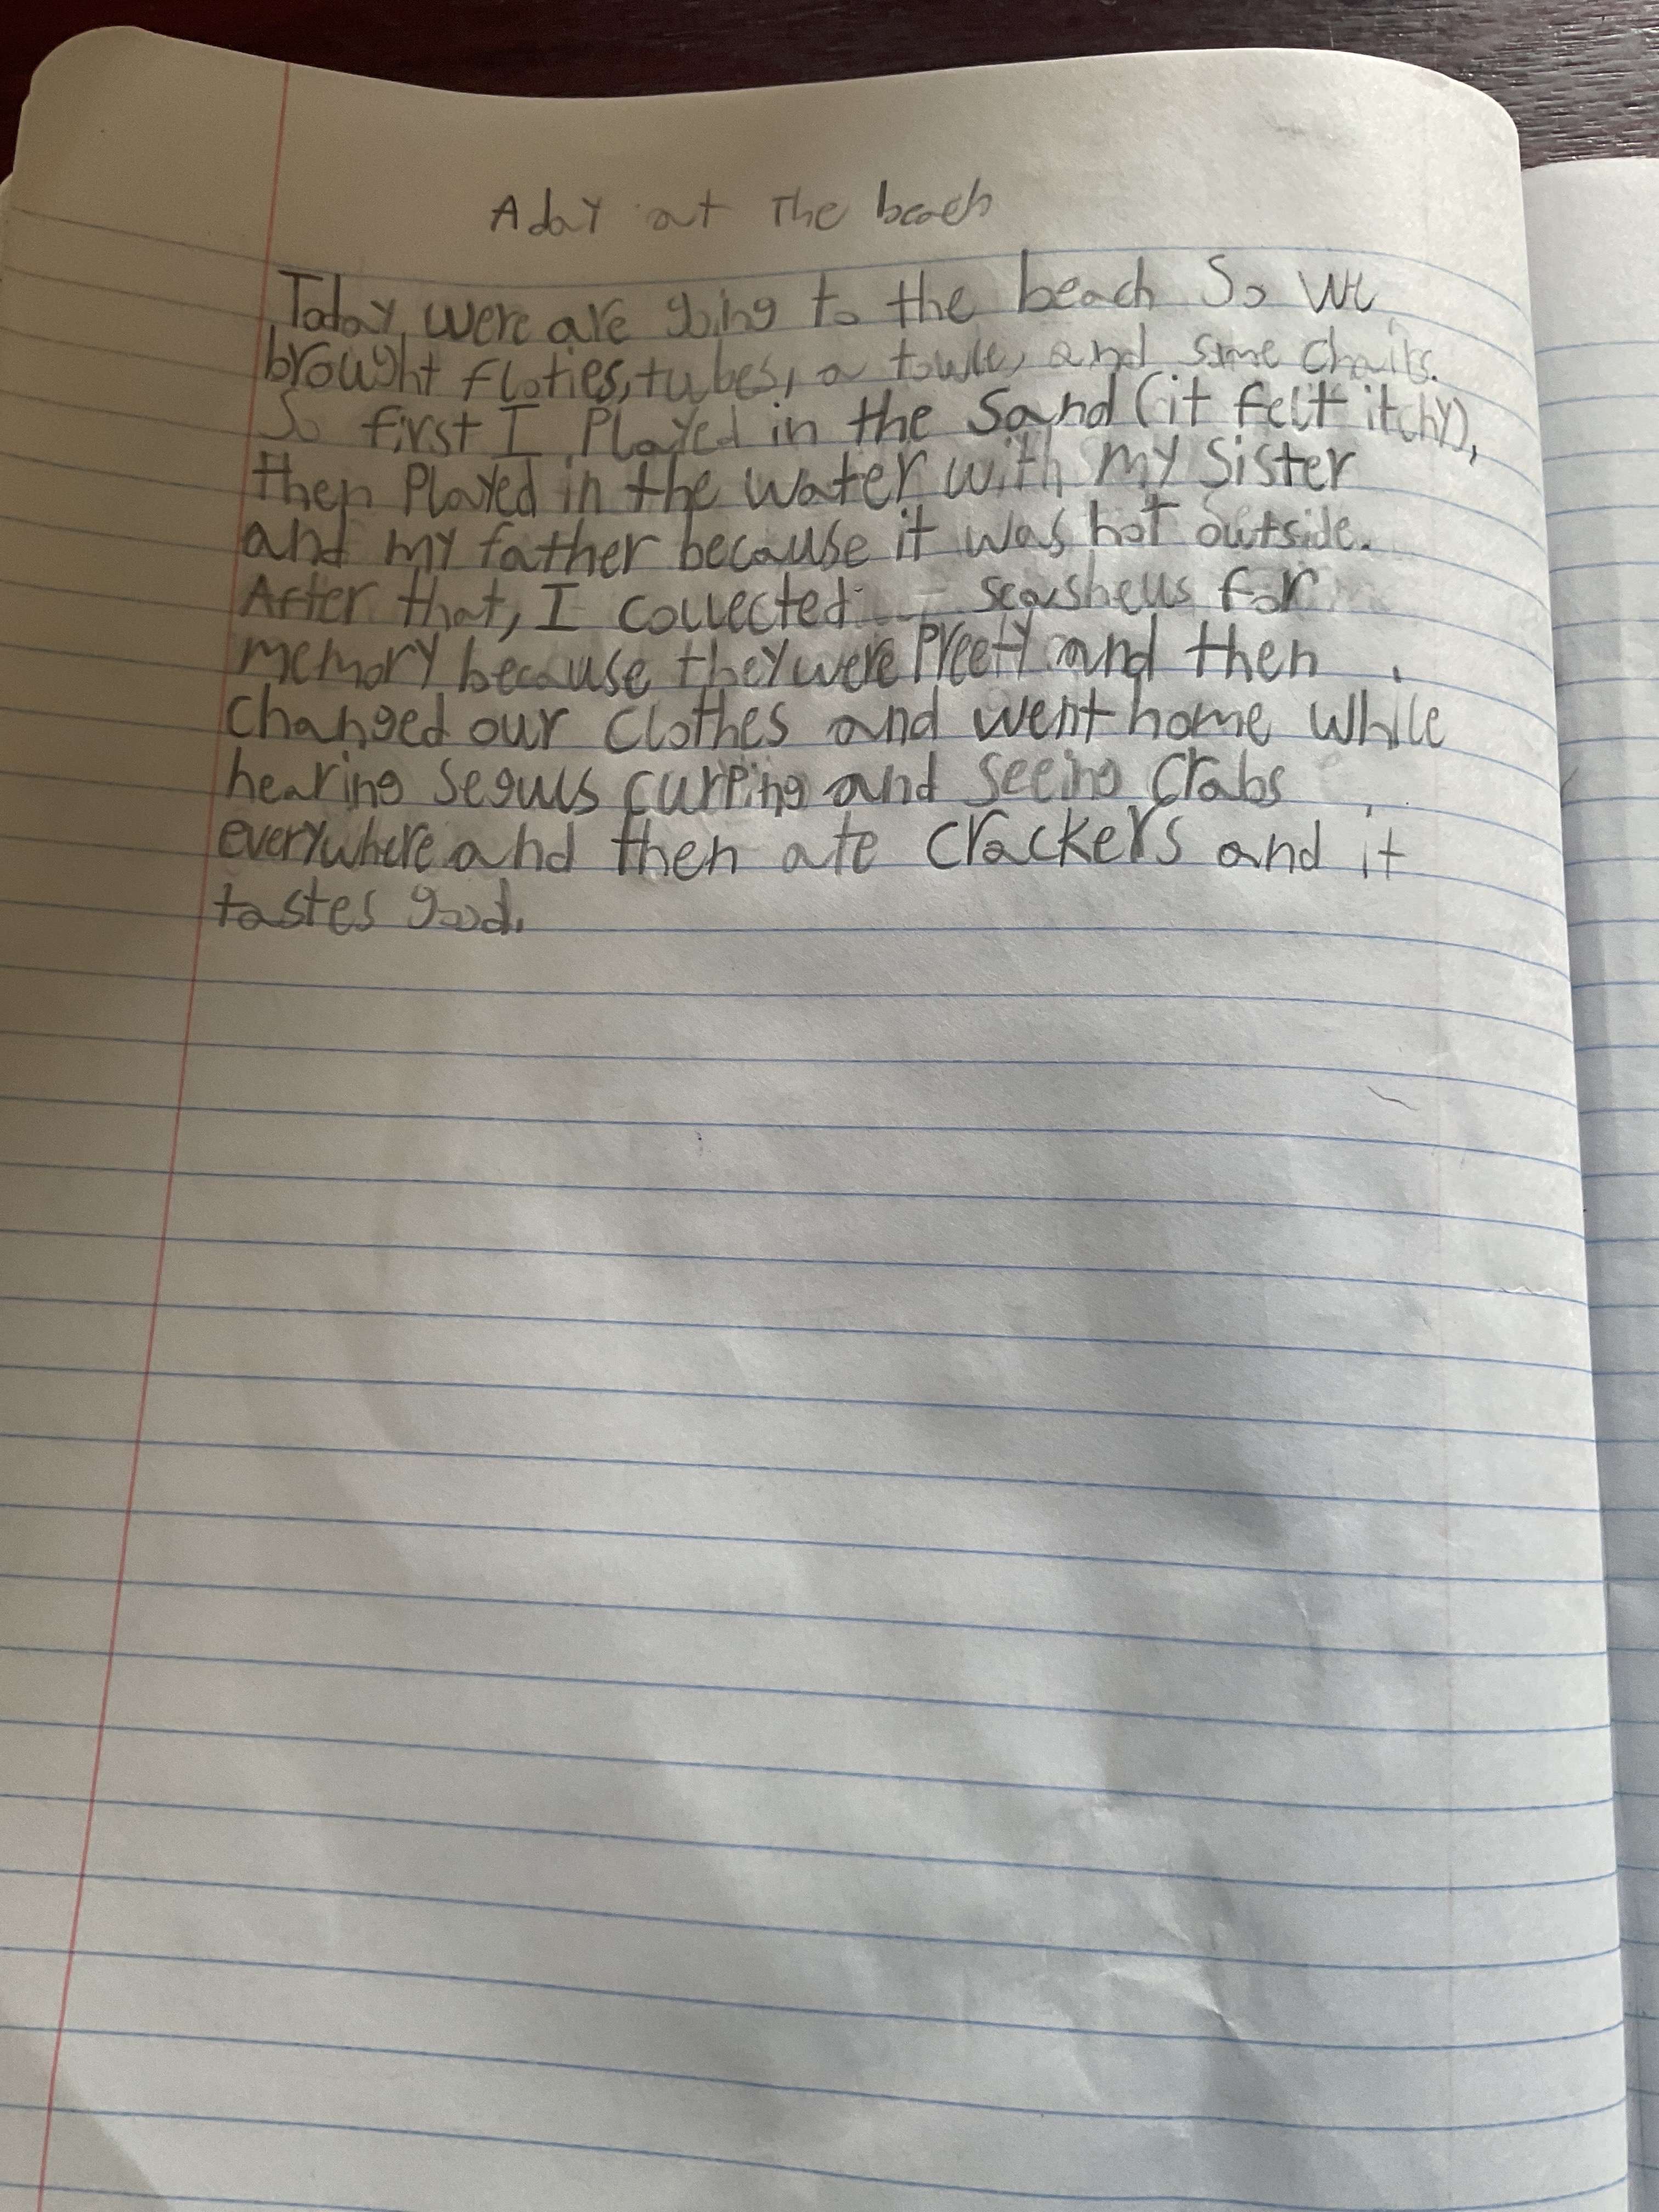 A day at the beach
Today, were are going to the beach So we
brought floties, tubes, a towle, and some chairs.
So first I Played in the Sand (it felt itchy),
then Played in the water with my Sister
and my father because it was hot outside.
After that, I collected seashells for
memory because they were Preety and then
changed our clothes and went home while
hearing seguls curping and seeing crabs
everywhere and then ate crackers and it
tastes good.